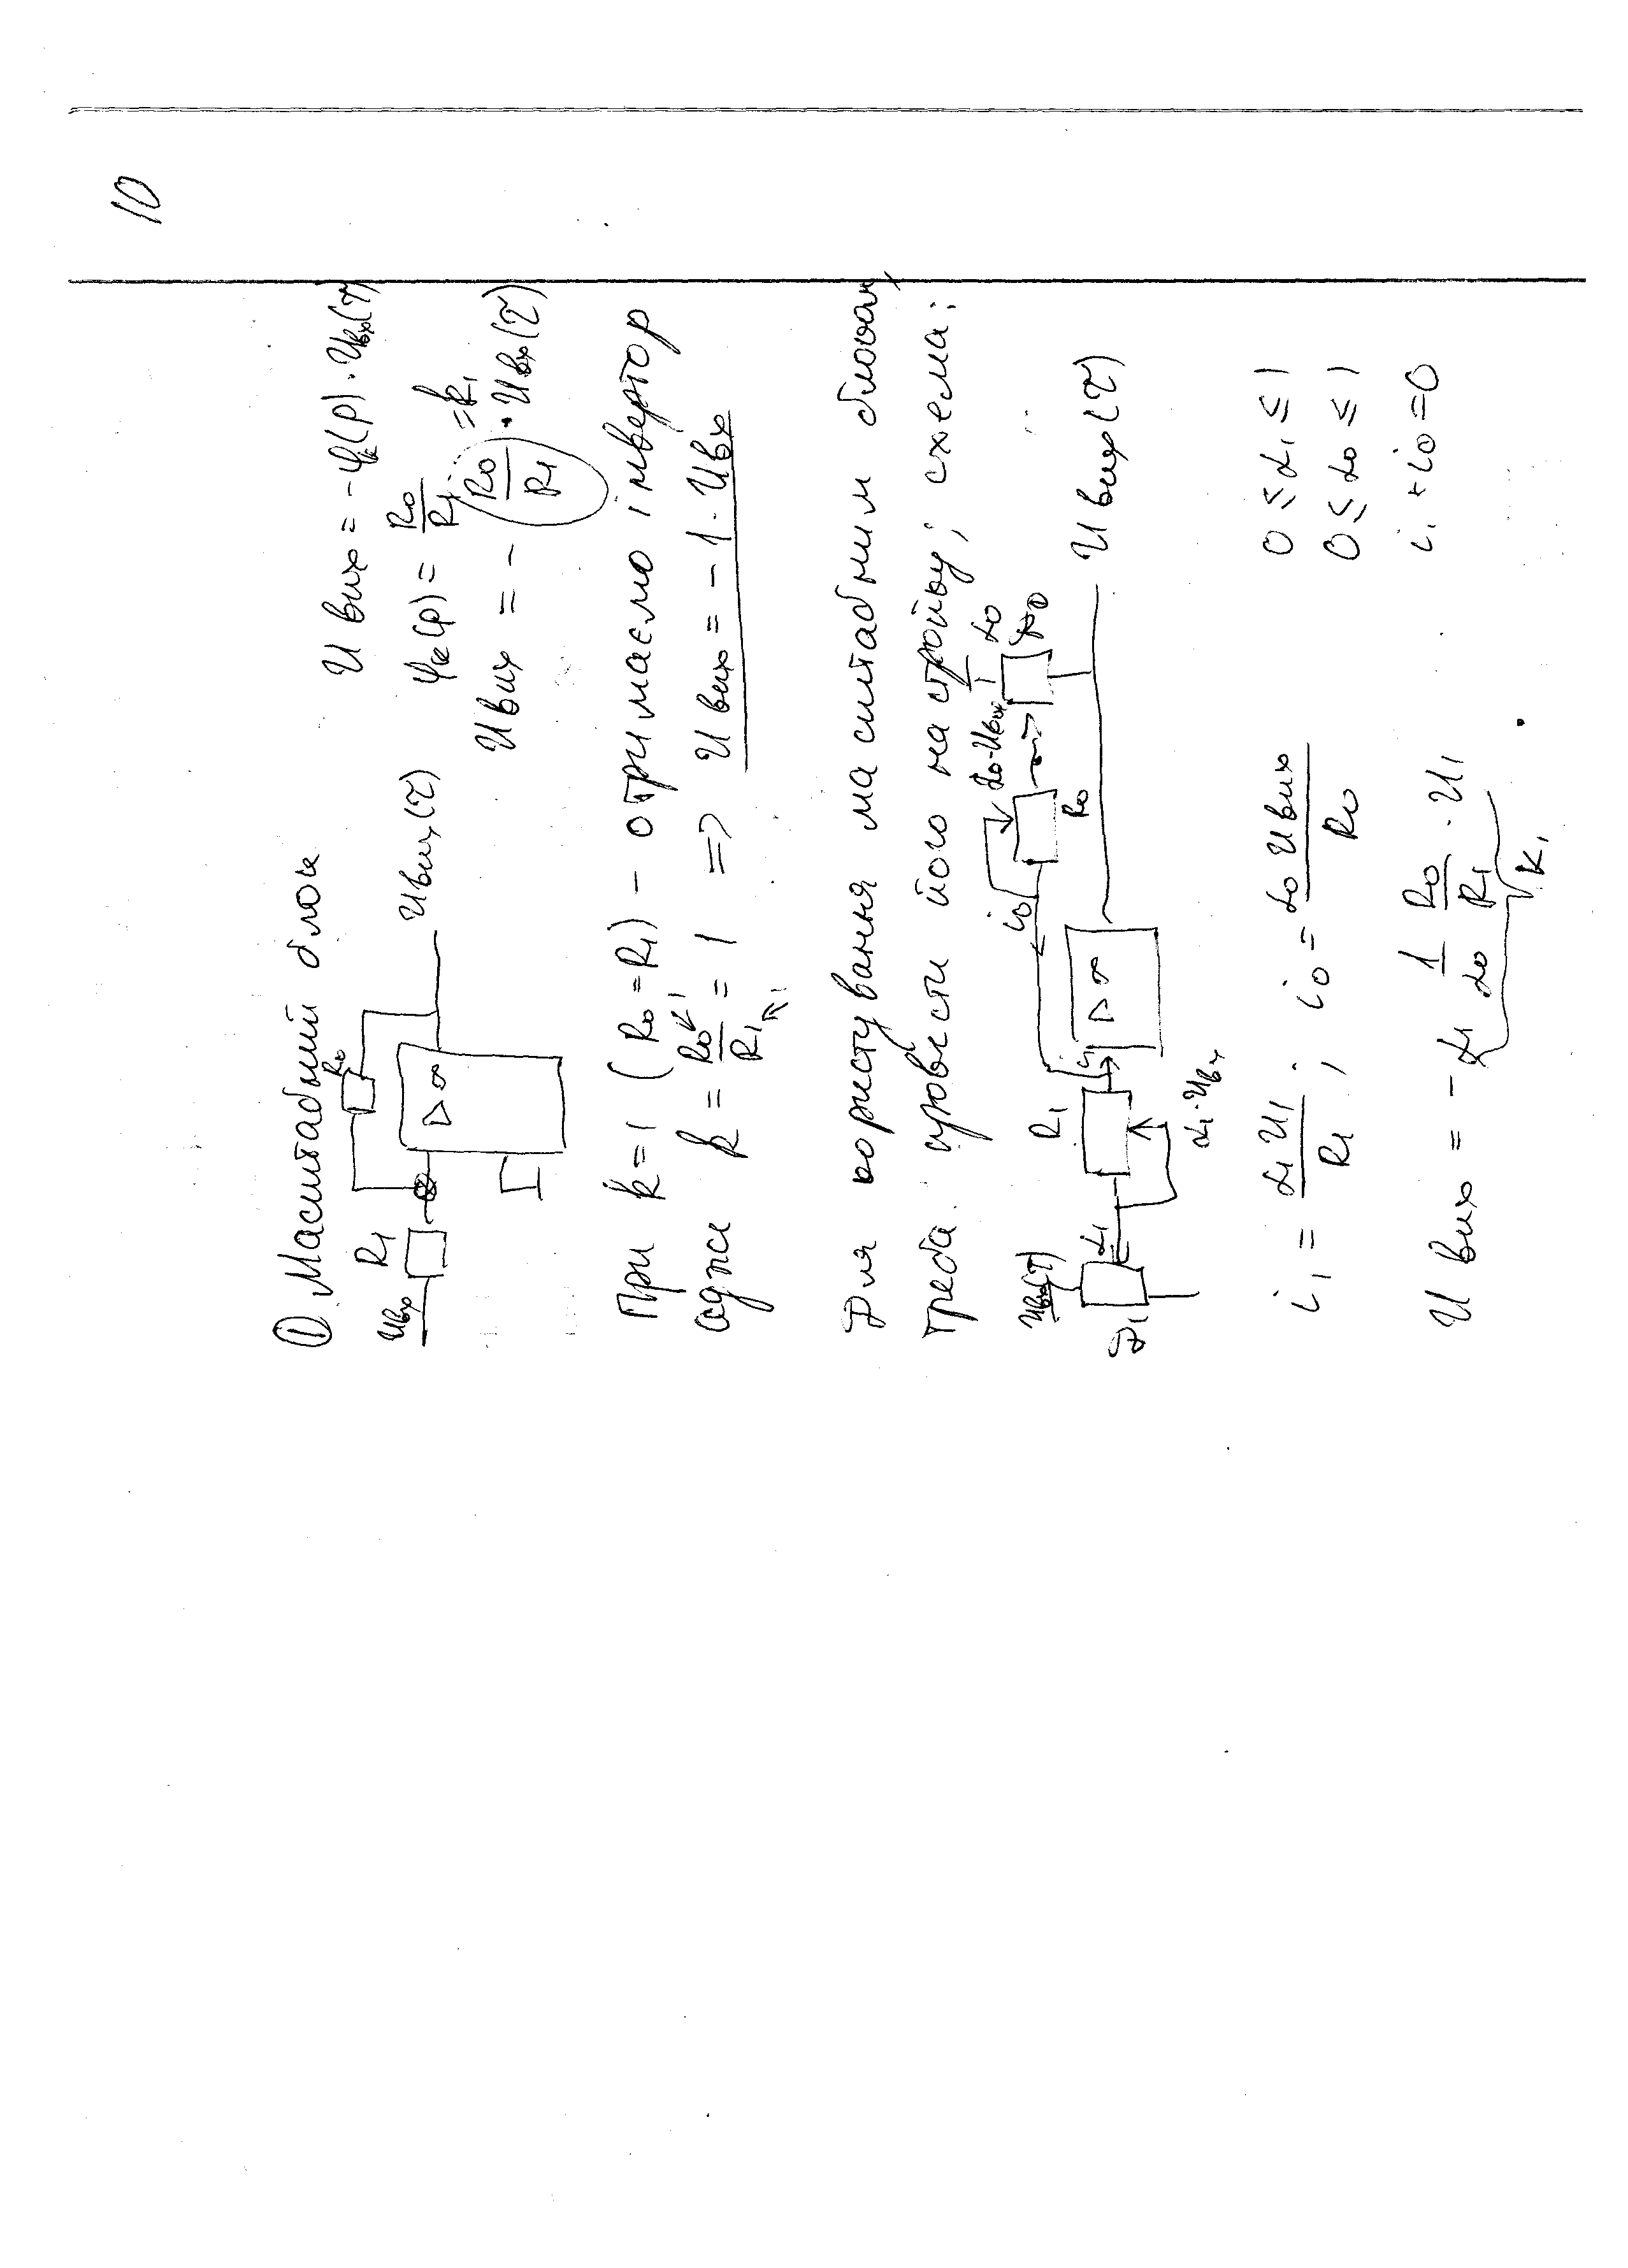 10
① Масштабний блок
U вих = -φk(p) · Uвх(τ)
R1
R0
Uвх
▷ ∞
Uвих(τ)
φk(p) = R0/R1 = k1
Uвих = - (R0/R1) · Uвх(τ)
При k=1 (R0=R1) - отримаємо інвертор
адже k = R0/R1 = 1 => U вих = -1 · Uвх
Для користування масштабним блоком
треба провести його настройку; схема:
Uвх(τ)
α1
R1
i1
α1·Uвх
▷ ∞
i0
R0
α0·Uвих
α0
U вих(τ)
i1 = α1 U1 / R1 ; i0 = α0 Uвих / R0
0 ≤ α1 ≤ 1
0 ≤ α0 ≤ 1
i1 + i0 = 0
U вих = - α1 1/α0 R0/R1 · U1
K1